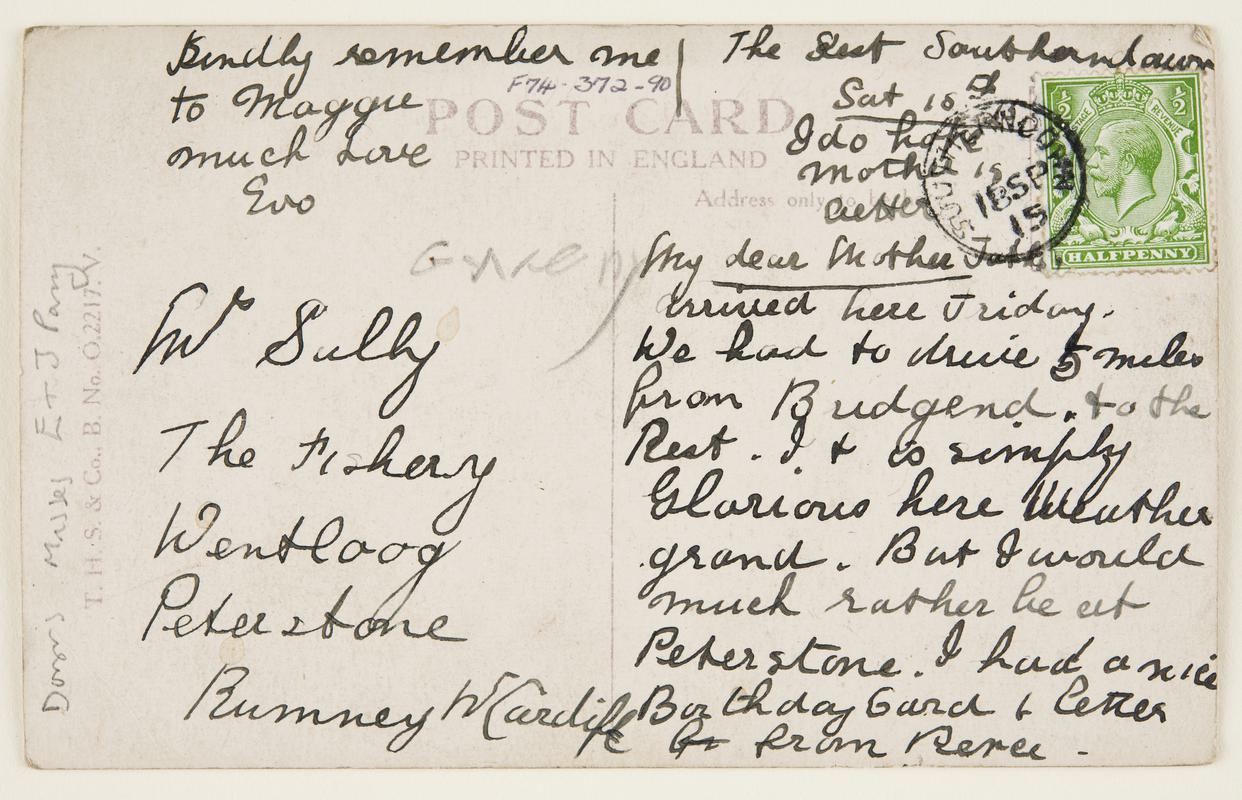 Kindly remember me
to Maggie
much Love
Evo
F74-372-90
POST CARD
PRINTED IN ENGLAND
Address only to be
The Rest Southerndown
Sat 18
I do hope
Mother is
better
My dear Mother
arrived here Friday.
We had to drive 5 miles
from Bridgend. to the
Rest. It is simply
Glorious here Weather
grand. But I would
much rather be at
Peterstone. I had a nice
Birthday Card & letter
from
SOUTHERNDOWN
18 SP
15
½ ½
POSTAGE REVENUE
HALFPENNY
Mrs Sully
The Fishery
Wentloog
Peterstone
Rumney Nr Cardiff
Donors Misses E & J Parry
T. H. S. & Co., B. No. O.2217. V.